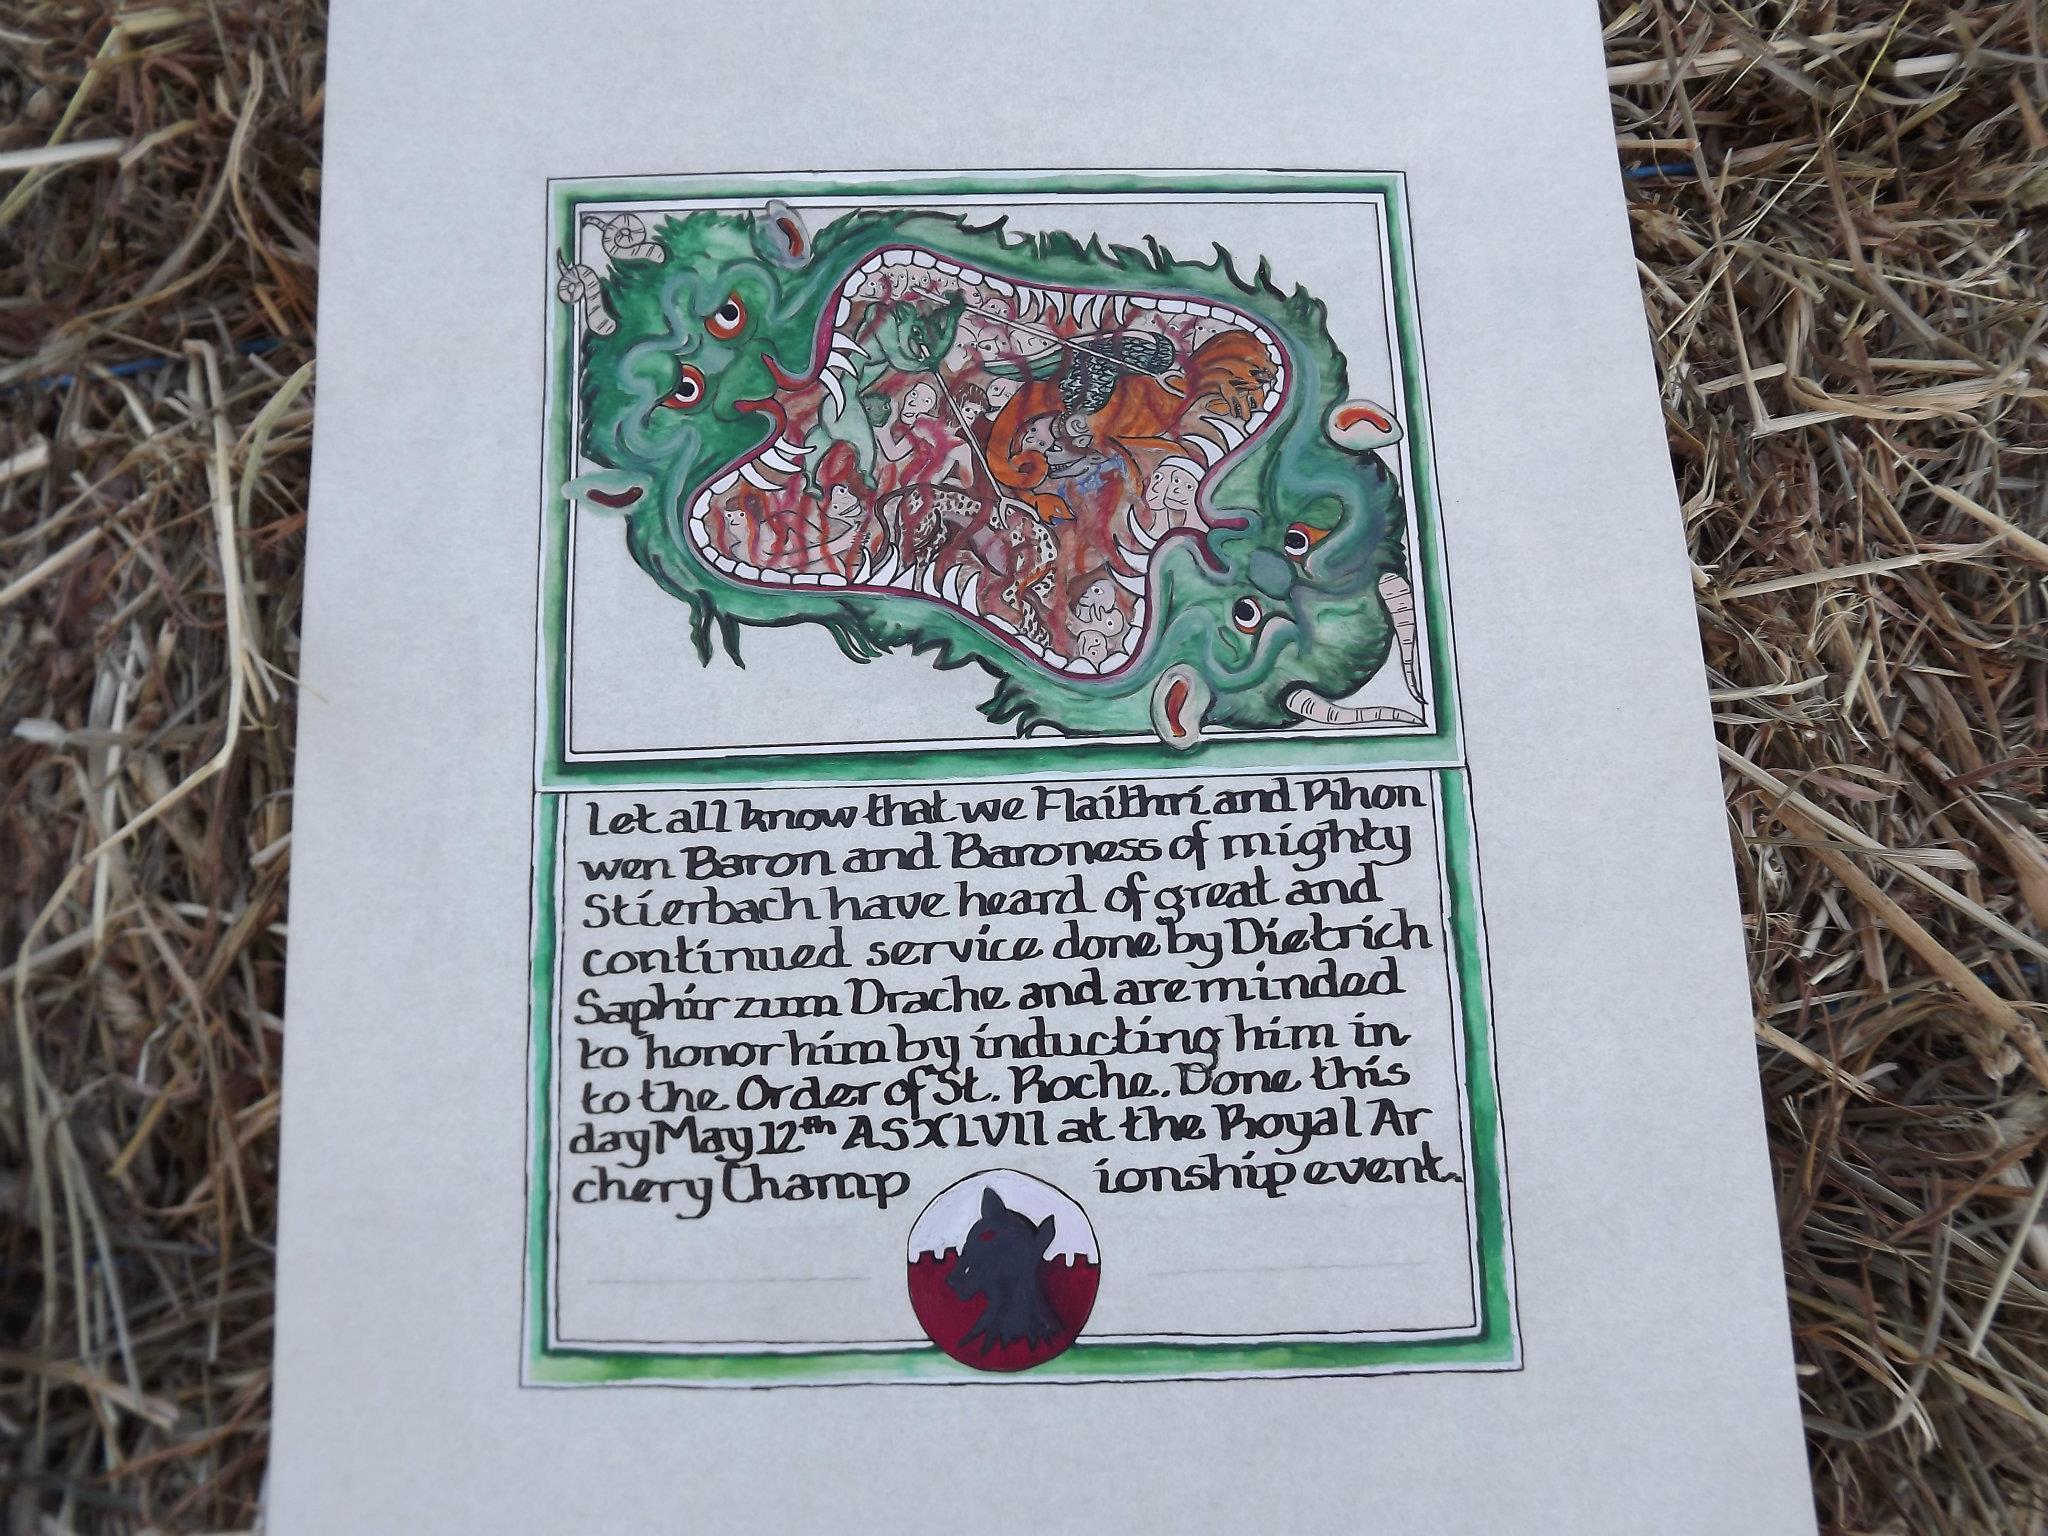 Let all know that we Flaithri and Rhon
wen Baron and Baroness of mighty
Stierbach have heard of great and
continued service done by Dietrich
Saphir zum Drache and are minded
to honor him by inducting him in
to the Order of St. Roche. Done this
day May 12th AS XLVII at the Royal Ar
chery Champ ionship event.